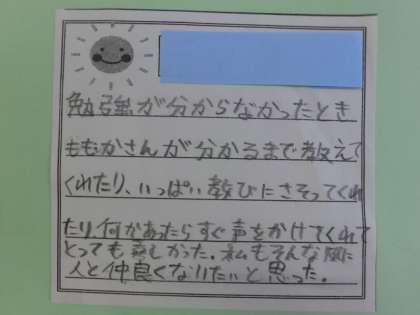 勉強が分からなかったとき
ももかさんが分かるまで教えて
くれたり、いっぱい遊びにさそってくれ
たり、何かあったらすぐ声をかけてくれて
とっても嬉しかった。私もそんな風に
人と仲良くなりたいと思った。